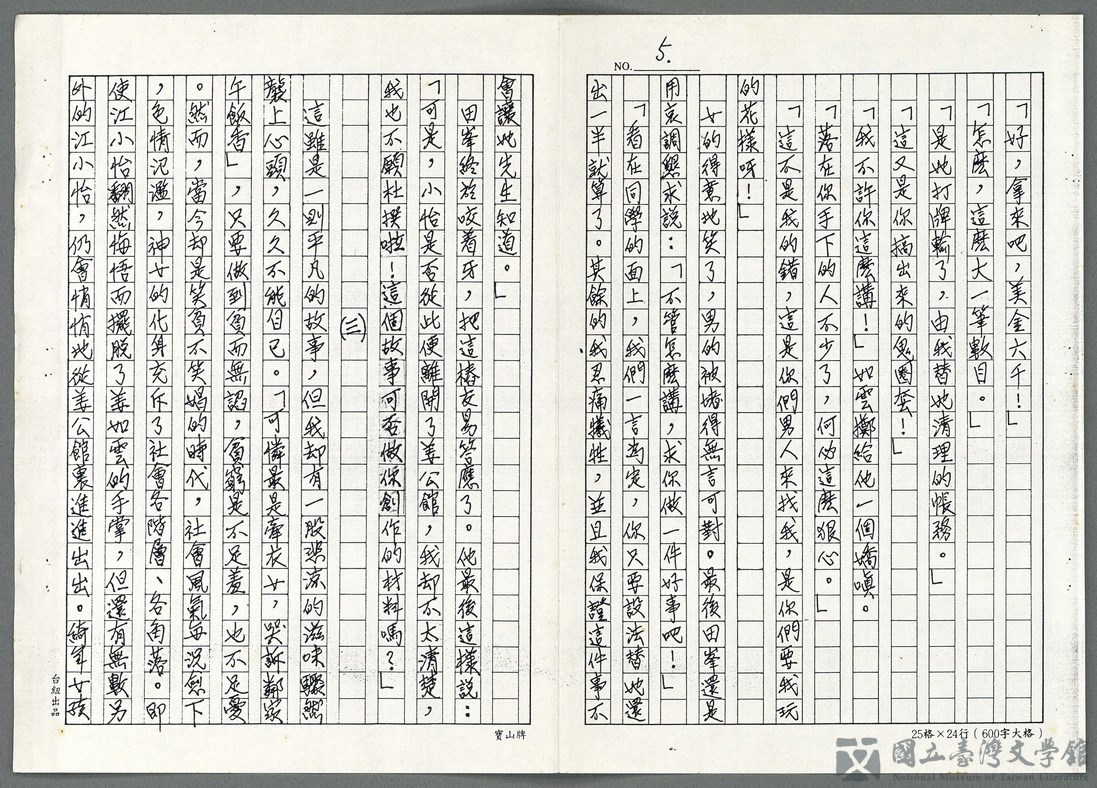 NO. 5.
「好，拿來吧，美金六千！」
「怎麽，這麽大一筆數目。」
「是她打牌輸了，由我替她清理的帳務。」
「這又是你搞出來的鬼圈套！」
「我不許你這麽講！」如雲擲給他一個嬌嗔。
「落在你手下的人不少了，何必這麽狠心。」
「這不是我的錯，這是你們男人來找我，是你們要我玩
的花樣呀！」
女的得意地笑了，男的被堵得無言可對。最後田峯還是
用哀調懇求說：「不管怎麽講，求你做一件好事吧！」
「看在同學的面上，我們一言為定，你只要設法替她還
出一半就算了。其餘的我忍痛犧牲，並且我保證這件事不
會讓她先生知道。」
田峯終於咬着牙，把這樁交易答應了。他最後這樣說：
「可是，小怡是否從此便離開了姜公館，我却不太清楚，
我也不願杜撰啦！這個故事可否做你創作的材料嗎？」
(三)
這雖是一則平凡的故事，但我却有一股悲涼的滋味驟然
襲上心頭，久久不能自已。「可憐最是牽衣女，哭訴鄰家
午飯香」，只要做到貧而無認，貧窮是不足羞，也不足憂
。然而，當今却是笑貧不笑娼的時代，社會風氣每況愈下
，色情氾濫，神女的化身充斥了社會各階層、各角落。即
使江小怡翻然悔悟而擺脫了姜如雲的手掌，但還有無數另
外的江小怡，仍會悄悄地從姜公館裏進進出出。綺年女孩
台紐出品
寶山牌
25格×24行（600字大格）
國立臺灣文學館
National Museum of Taiwan Literature